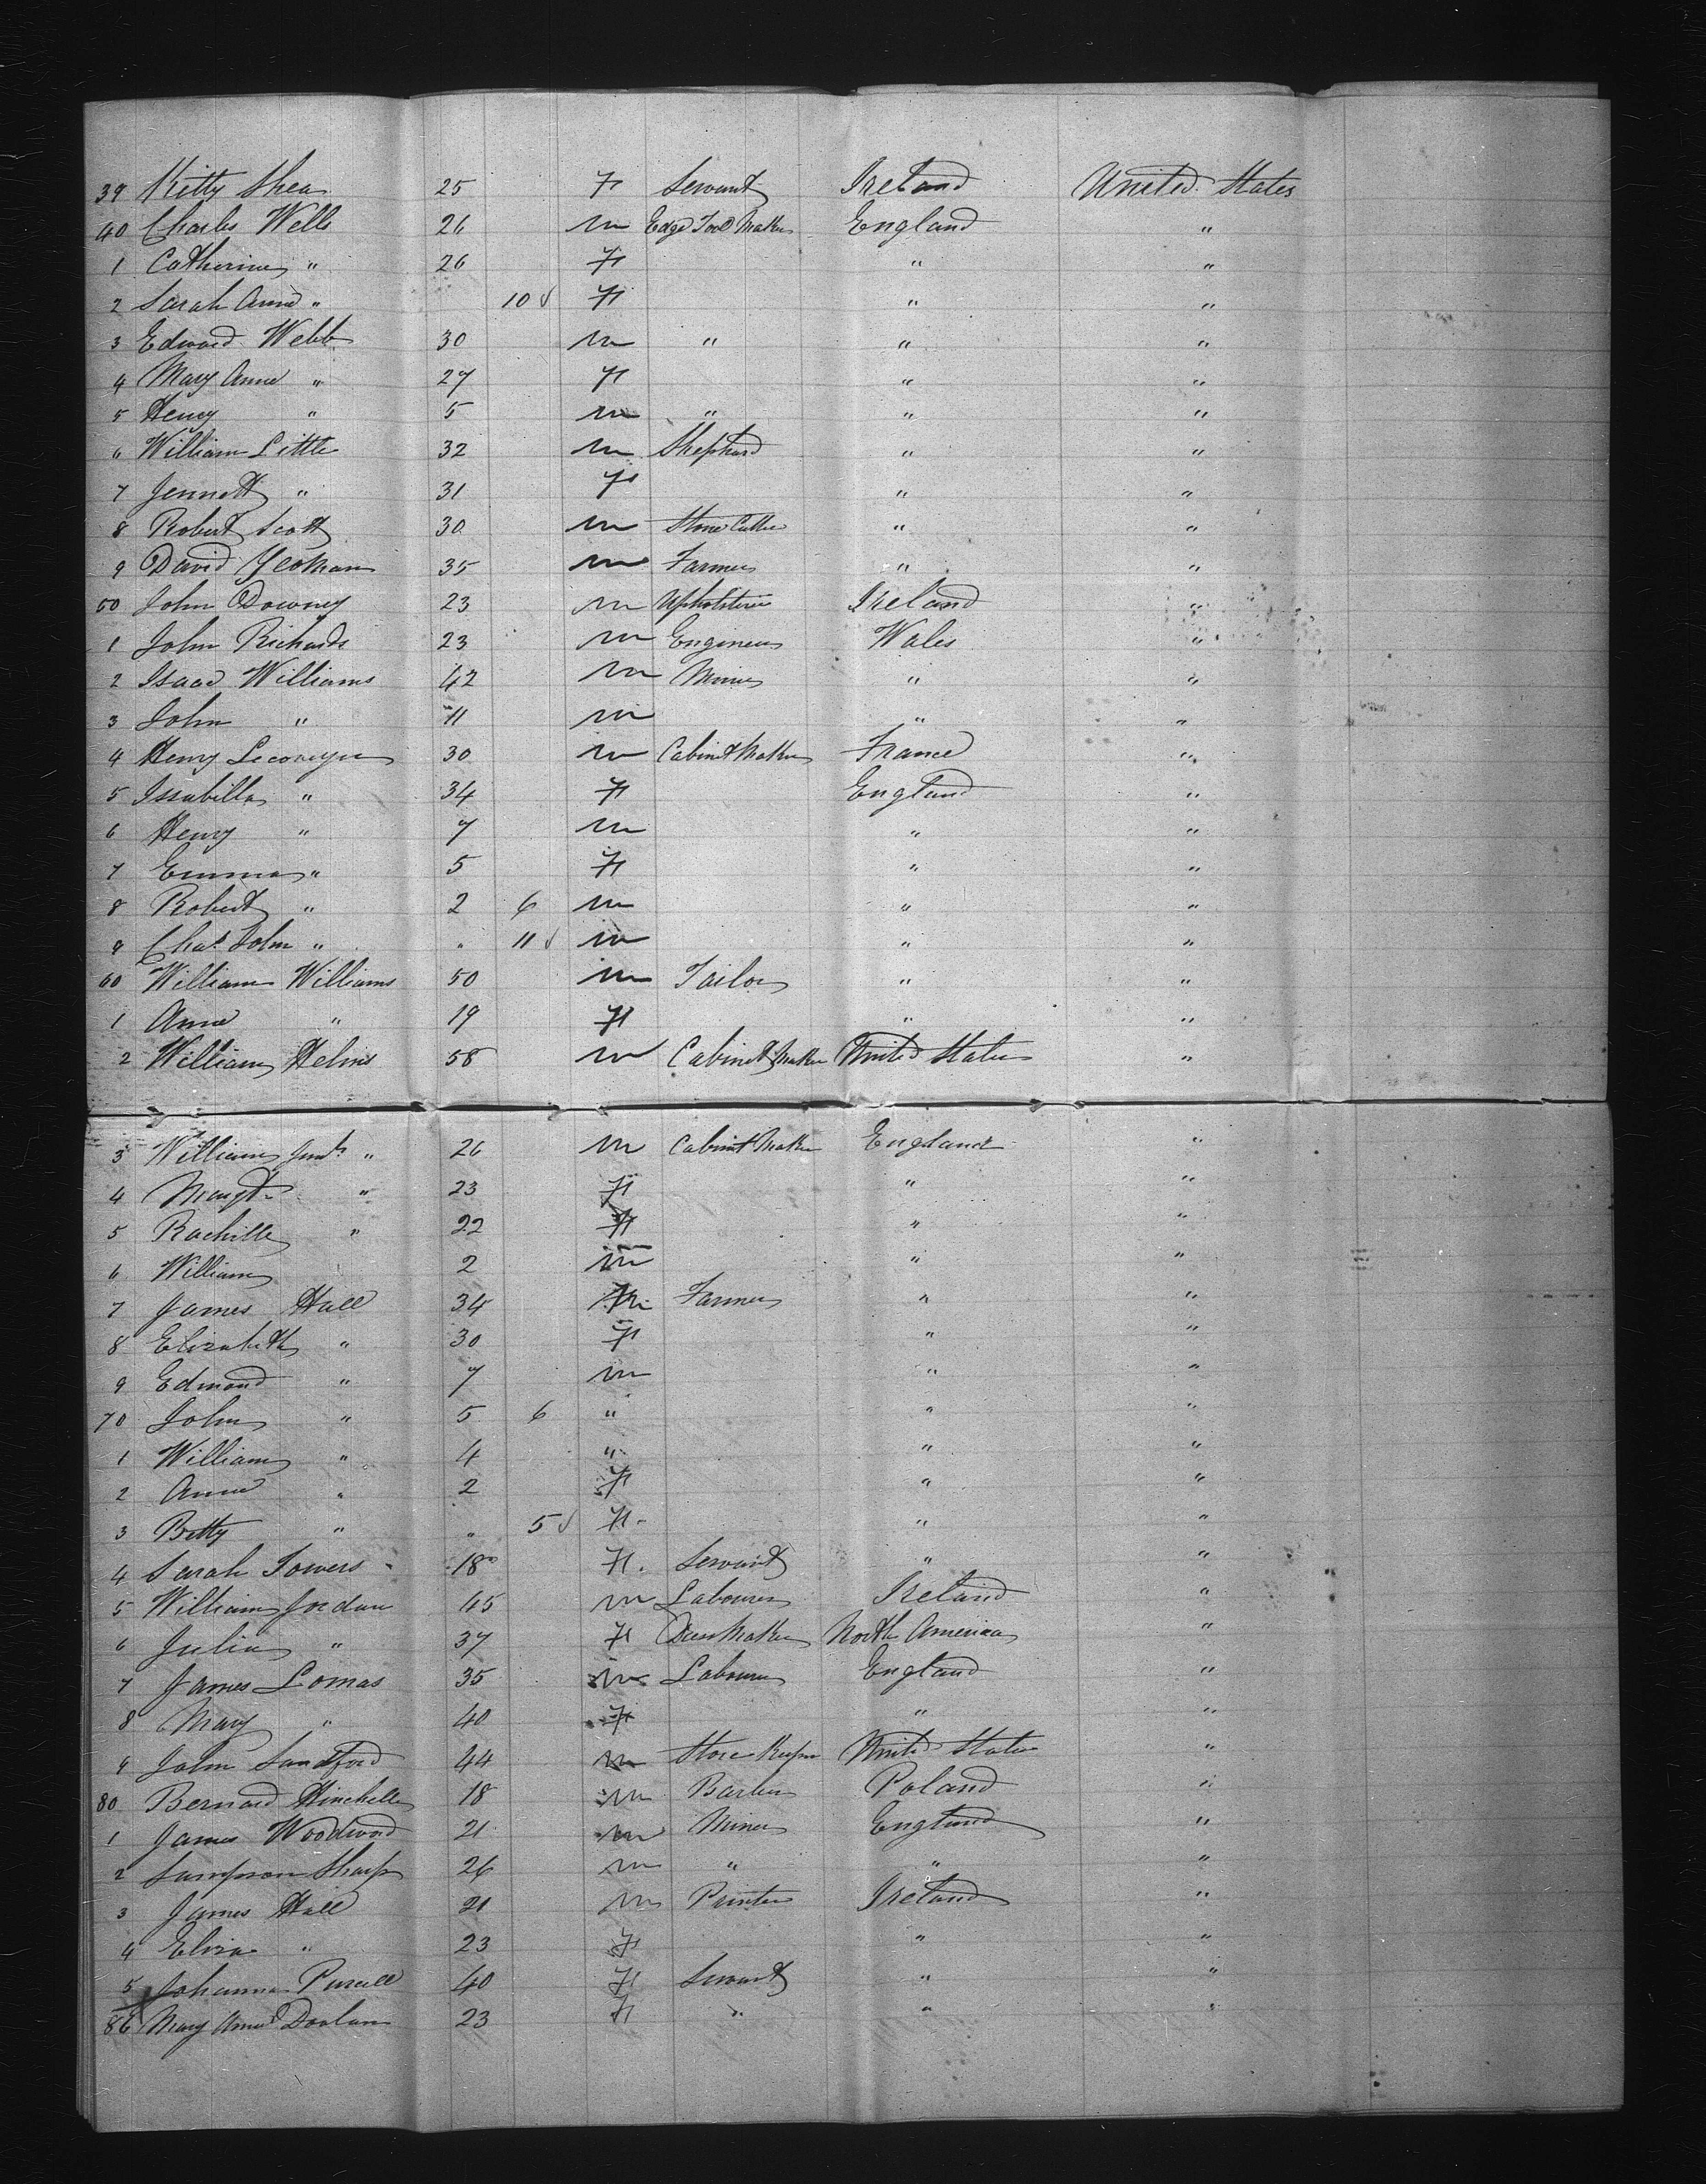 39 Kitty Shea 25 F Servant Ireland United States
40 Charles Wells 26 m Edge Tool Maker England "
1 Catherine " 26 F " "
2 Sarah Anne " 10 F " "
3 Edward Webb 30 m " " "
4 Mary Anne " 27 F " "
5 Henry " 5 m " " "
6 William Little 32 m Shepherd " "
7 Jennett " 31 F " "
8 Robert Scott 30 m Stone Cutter " "
9 David Yeoman 35 m Farmer " "
50 John Downey 23 m Upholsterer Ireland "
1 John Richards 23 m Engineer Wales "
2 Isaac Williams 42 m Miner " "
3 John " 11 m " "
4 Henry 30 m Cabinet Maker France "
5 Issabilla " 34 F England "
6 Henry " 7 m " "
7 Emma " 5 F " "
8 Robert " 2 6 m " "
9 Chas John " " 11 m " "
60 William Williams 50 m Tailor " "
1 Anne " 19 F " "
2 William Helms 58 m Cabinet Maker United States "
3 William Junr " 26 m Cabinet Maker England "
4 Margt " 23 F " "
5 Rachille " 22 F " "
6 William 2 m " "
7 James Hall 34 m Farmer " "
8 Elizabeth " 30 F " "
9 Edmond " 7 m " "
70 John " 5 6 " " "
1 William " 4 " " "
2 Anne " 2 F " "
3 Betty " " 5 F " "
4 Sarah Towers 18 F. Servant " "
5 William Jordan 45 m Labourer Ireland "
6 Julia " 37 F Dress Maker North America "
7 James Lomas 35 m Labourer England "
8 Mary " 40 F " "
9 John Sandford 44 m Store Keeper United States "
80 Bernard 18 m Barber Poland "
1 James Woodward 21 m Miner England "
2 Sampson Sharp 26 m " " "
3 James Hall 21 m Printer Ireland "
4 Eliza " 23 F " "
5 Johanna Purcell 40 F Servant " "
86 Mary Anne Doolan 23 F " " "